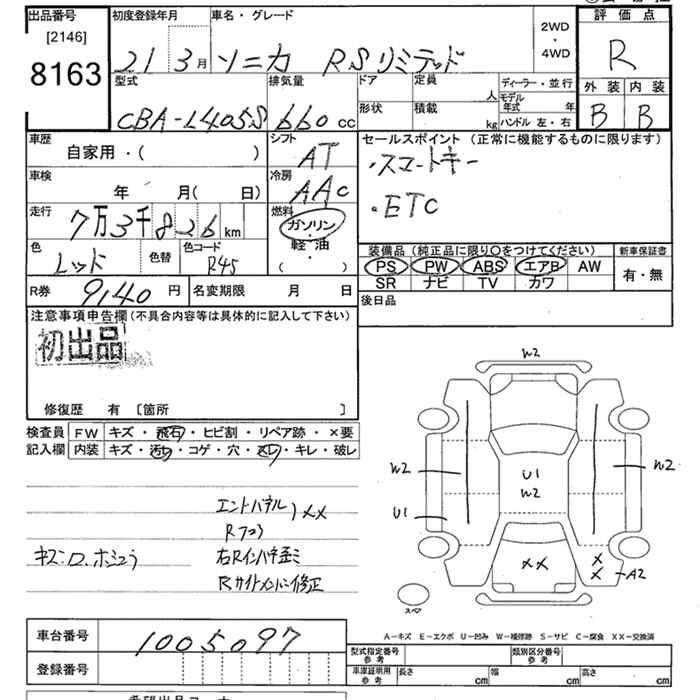 出品番号
[2146]
8163
初度登録年月
21 3月
車名・グレード
ソニカ RSリミテッド
2WD
・
4WD
評価点
R
外装 内装
B B
型式
CBA-L405S
排気量
660 cc
ドア
定員
人
形状
積載
kg
ディーラー・並行
モデル年式 年
ハンドル 左・右
車歴
自家用・( )
シフト
AT
セールスポイント (正常に機能するものに限ります)
・スマートキー
・ETC
車検
年 月( 日)
冷房
AAC
走行
7万3千826km
燃料
ガソリン
軽・油
( )
色
レッド
色替
色コード
R45
装備品 (純正品に限り〇をつけてください)
新車保証書
PS PW ABS エアB AW
SR ナビ TV カワ
有・無
R券 9,140 円
名変期限 月 日
後日品
注意事項申告欄(不具合内容等は具体的に記入して下さい)
初出品
修復歴 有 〔箇所 〕
検査員
記入欄
FW キズ・飛石・ヒビ割・リペア跡・×要
内装 キズ・汚れ・コゲ・穴・スレ・キレ・破レ
エンドパネル
Rフロア
XX
キズ・ロ、ホシュウ
右Rインパネ歪ミ
Rサイドメンバー修正
W2
W2
U1
U1
W2
W2
XX
X
X
A2
スペア
A-キズ E-エクボ U-凹み W-補修跡 S-サビ C-腐食 XX-交換済
車台番号
1005097
登録番号
型式指定番号
参考
類別区分番号
参考
車庫証明用
参考
長さ cm 幅 cm 高さ cm